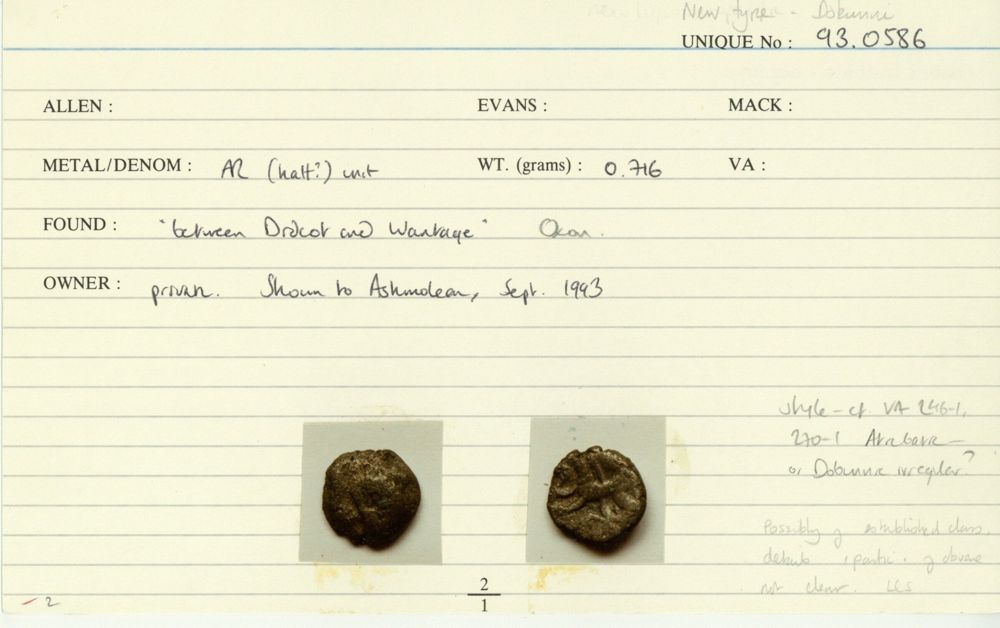 New type - Dobunni
UNIQUE No : 93.0586
ALLEN : EVANS : MACK :
METAL/DENOM : AR (half?) unit WT. (grams) : 0.716 VA :
FOUND : "between Didcot and Wantage" Oxon.
OWNER : private. Shown to Ashmolean, Sept. 1993
style - cf. VA 246-1,
270-1 Atrebatic -
or Dobunnic irregular?
Possibly of established class.
details , of obverse
not clear.
2
1
2